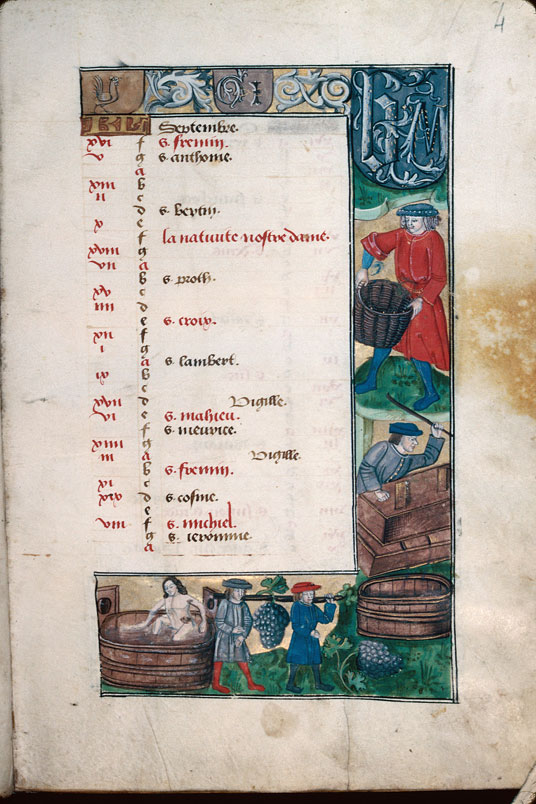 4
Septembre.
xvi f s. fremin.
v g s. anthonie.
A
xiii b
ii c
d s. bertin.
x e
f la natiuite nostre dame.
xviii g
vii A
b s. proth.
xv c
iiii d
e s. croix.
xii f
i g
A s. lambert.
ix b
c
xvii d Vigille.
vi e s. mahieu.
f s. meurice.
xiiii g
iii A Vigille.
b s. fremin.
xi c
xix d s. cosme.
e
viii f s. michiel.
g s. ieronime.
A